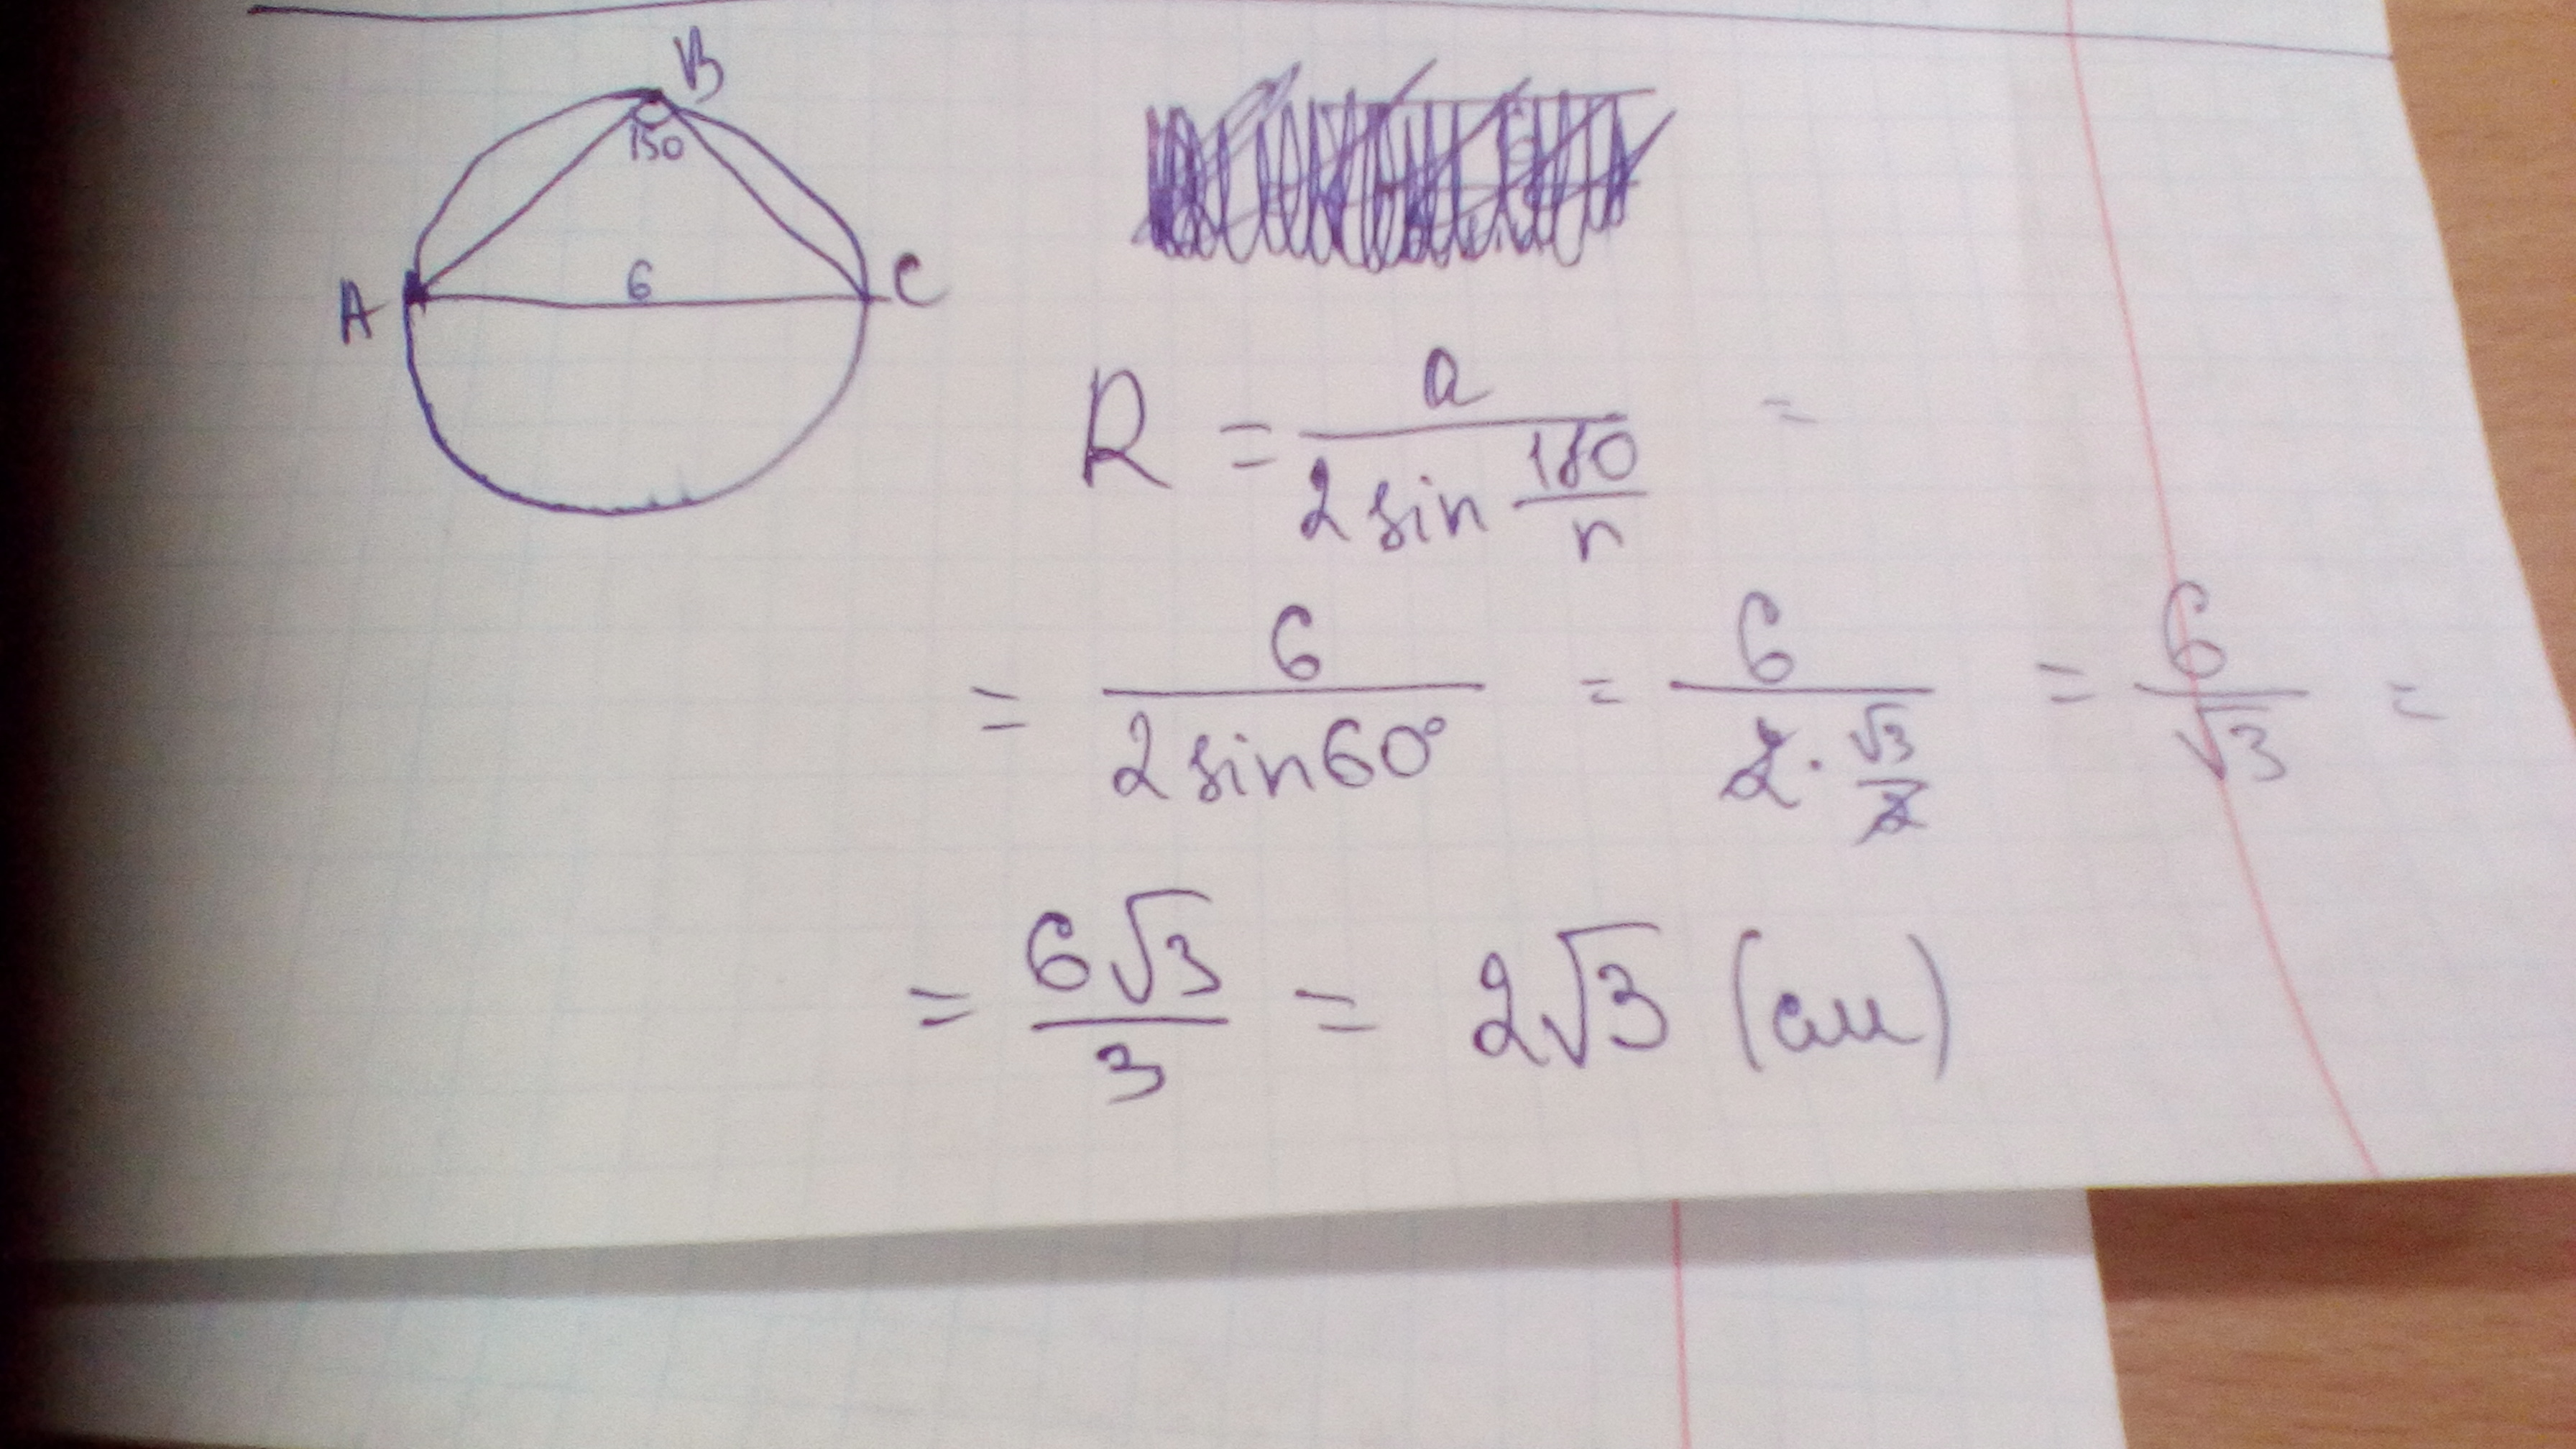 B
150
A 6 C
R = a / (2 sin 180/n) =
= 6 / (2 sin 60°) = 6 / (2 · √3/2) = 6/√3 =
= 6√3 / 3 = 2√3 (см)